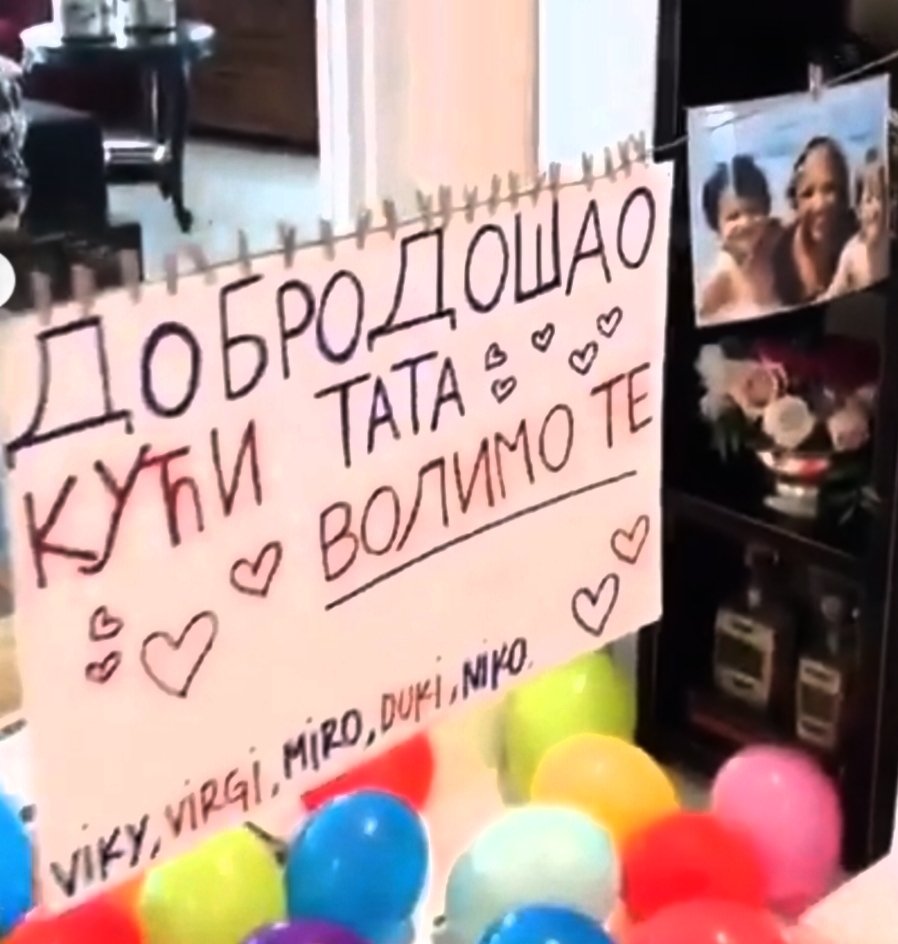 ДОБРОДОШАО
КУЋИ ТАТА
ВОЛИМО ТЕ
VIKY, VIRGI, MIRO, DUKI, NIKO.